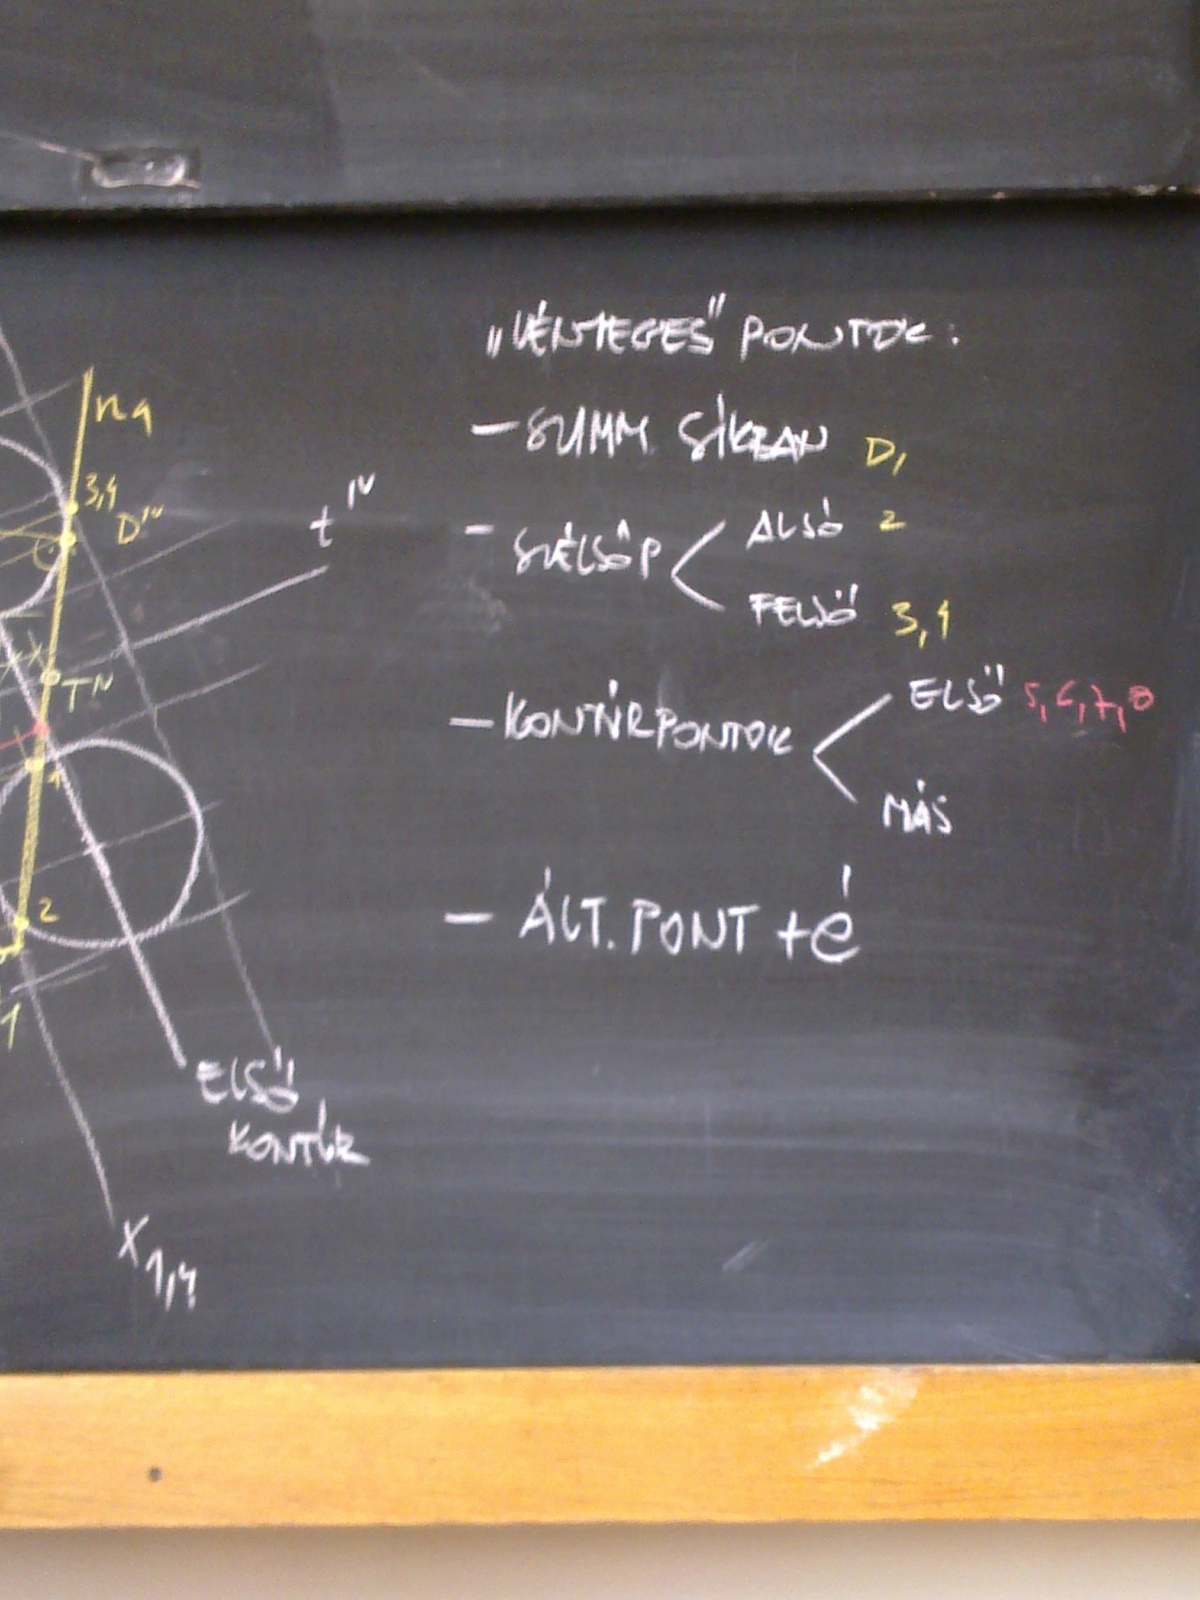 n4
3,4
D'''
t IV
T IV
1
2
1
ELSŐ
KONTÚR
X1,4
„LÉNYEGES" PONTOK:
- SZIMM. SÍKBAN D,
- SZÉLSŐP
ALSÓ 2
FELSŐ 3,4
- KONTÚRPONTOK
ELSŐ 5,6,7,8
MÁS
- ÁLT. PONT + é